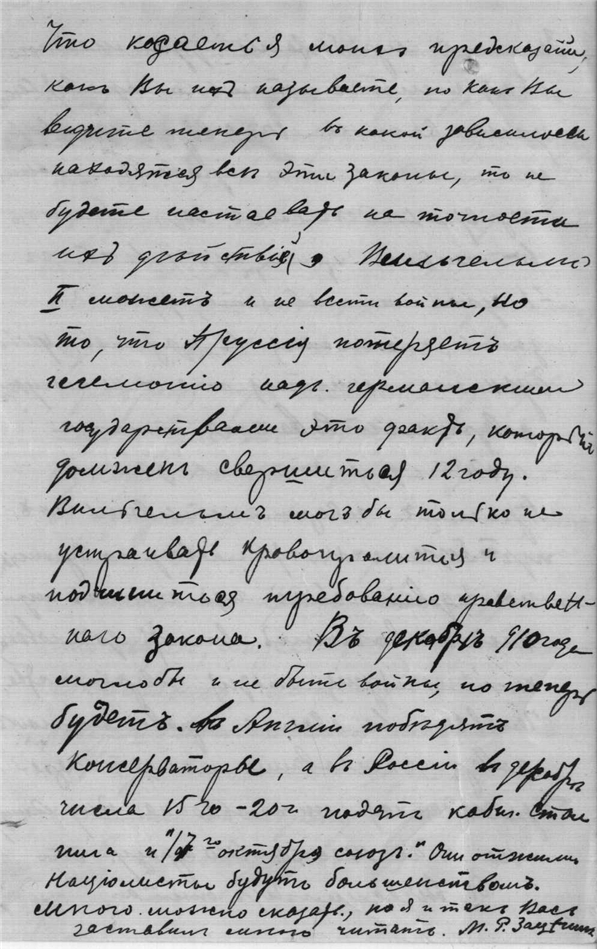 Что касается моихъ предсказаній,
какъ Вы ихъ называете, но какъ Вы
видите теперь въ какой зависимости
находятся все эти законы, то не
будете настаевать на точности
ихъ дѣйствій, Вильгельмъ
II можетъ и не вести войны, но
то, что Пруссія потеряетъ
гегемонію надъ германскими
государствами это фактъ, который
долженъ свершиться 12 году.
Вильгельмъ могъ бы только не
устраивать кровопролитія и
подчиниться требованію нравствен-
наго закона. Въ декабрѣ 910 года
моглобы и не быть войны, но теперь
будетъ. въ Англіи побѣдятъ
Консерваторы, а въ Россіи въ декабрѣ
числа 15 го - 20 г падетъ кабин. Столы
пина и "17 го октября союзъ." Они отжили
Націолисты будутъ большенствомъ.
Много можно сказать, но я и такъ Васъ
заставилъ много читать. М. Р.